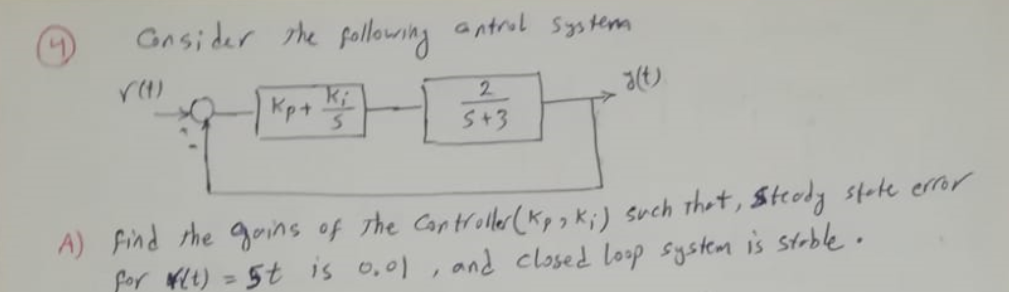 4 Consider the following control system
r(t) Kp + Ki/S 2/S+3 y(t)
A) find the gains of the Controller (Kp, Ki) such that, steady state error
for r(t) = 5t is 0.01, and closed loop system is stable.